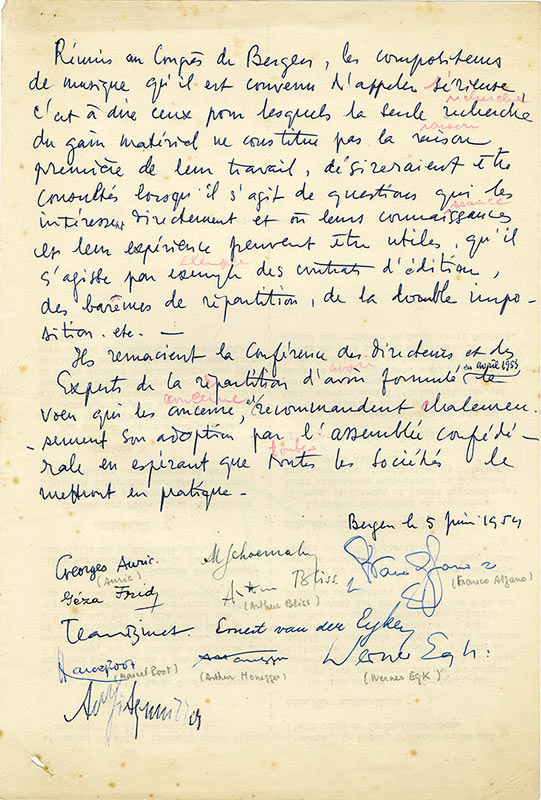 Réunis au Congrès de Bergen, les compositeurs
de musique qu'il est convenu d'appeler sérieuse
recherche
c'est à dire ceux pour lesquels la seule recherche
raison
du gain matériel ne constitue pas la raison
première de leur travail, désireraient être
consultés lorsqu'il s'agit de questions qui les
ssance
intéressent directement et où leurs connaissances
et leur expérience peuvent être utiles, qu'il
exemple
s'agisse par exemple des contrats d'édition,
des barèmes de répartition, de la double impo-
sition. etc. —
Ils remercient la Conférence des directeurs et des
avoir
Experts de la répartition d'avoir formulé, en avril 1955 le
concerne
voeu qui les concerne, et recommandent chaleureu-
-sement son adoption par l'assemblée confédé-
toutes
rale en espérant que toutes les sociétés le
mettront en pratique -
Bergen le 5 Juin 1954
Georges Auric.
(Auric)
Géza Frid
Arthur Bliss
(Arthur Bliss)
(Franco Alfano)
Jean Binet. Ernest van der Eyken
Marcel Poot
(Marcel Poot)
(Arthur Honegger)
Werner Egk.
(Werner Egk)